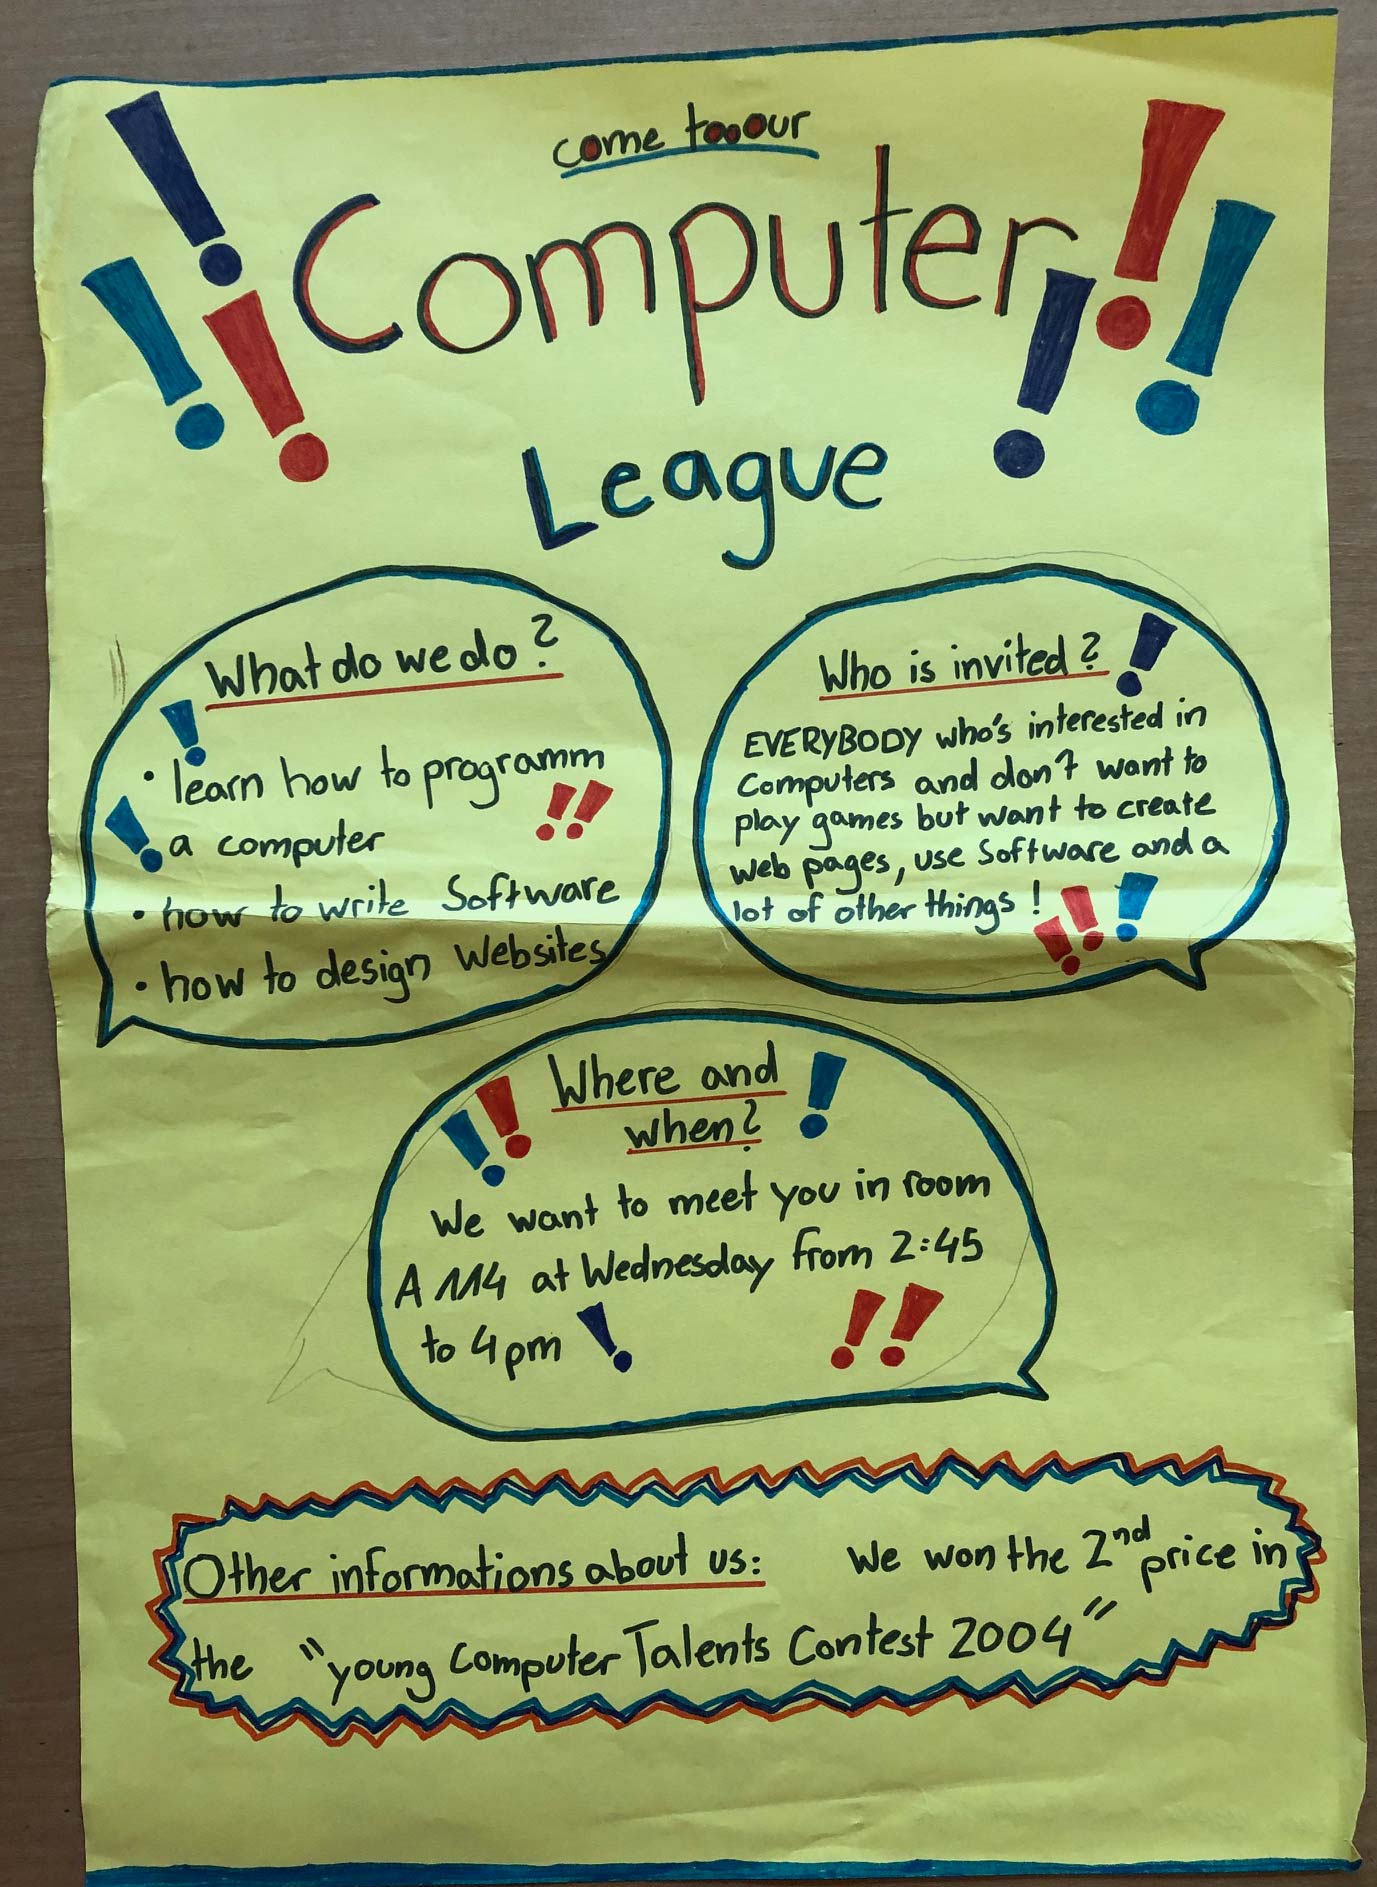 come tooour
Computer
League
What do we do?
• learn how to programm
a computer
• how to write Software
• how to design Websites
Who is invited?
EVERYBODY who's interested in
Computers and don't want to
play games but want to create
web pages, use Software and a
lot of other things!
Where and
when?
We want to meet you in room
A 114 at Wednesday from 2:45
to 4pm
Other informations about us: We won the 2nd price in
the "young Computer Talents Contest 2004"